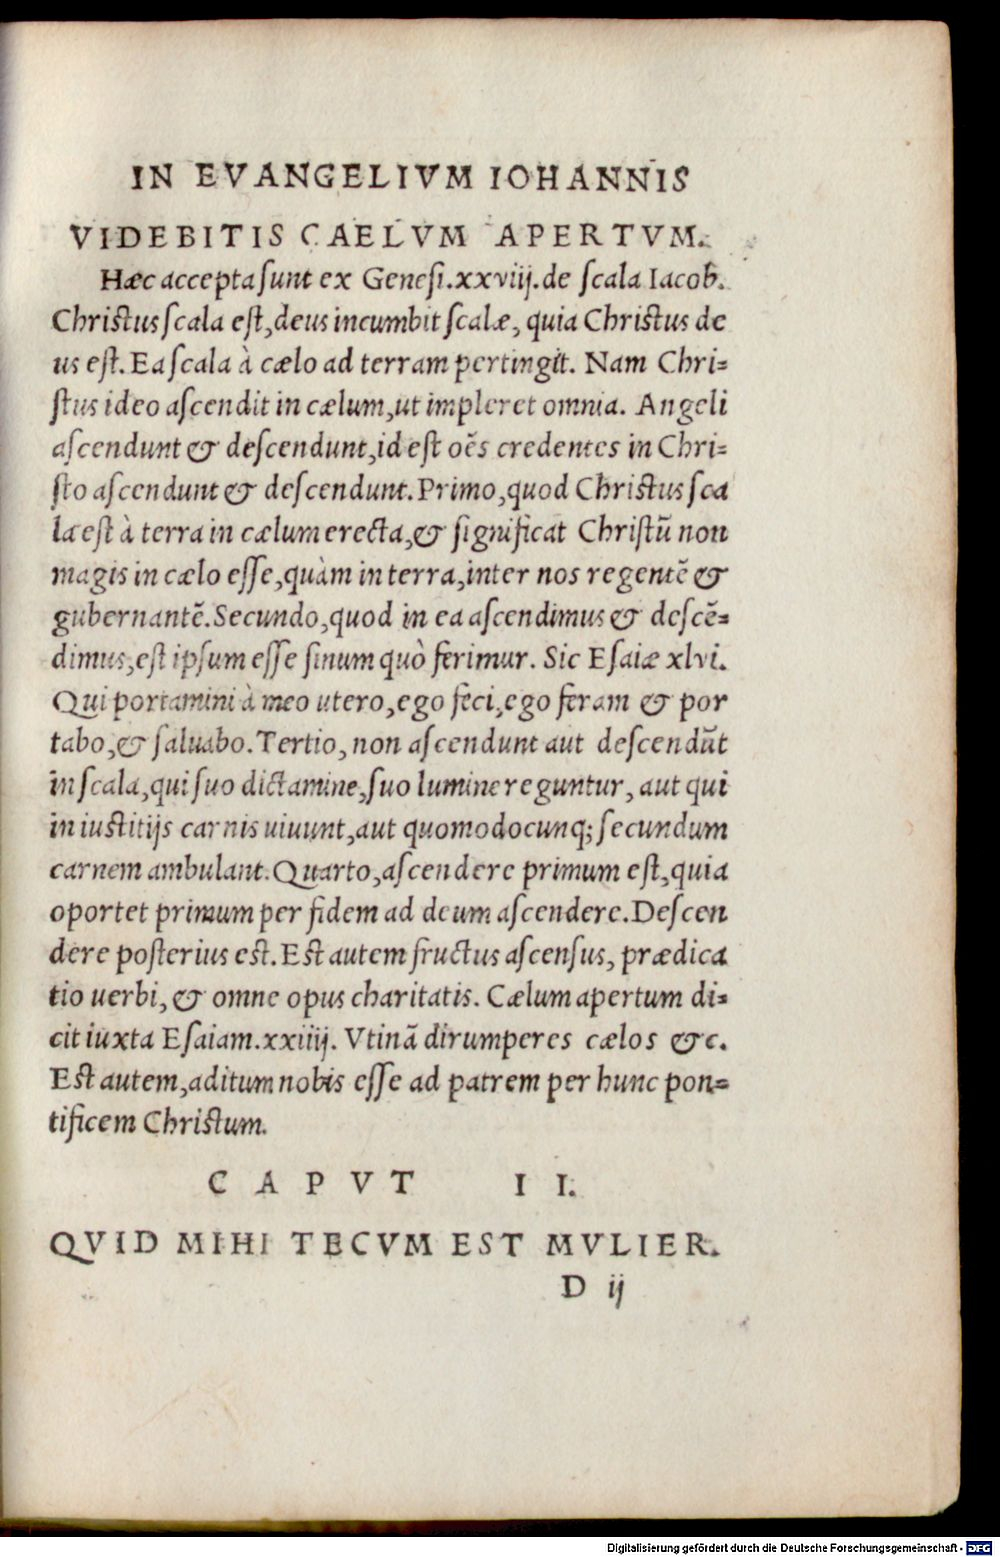 IN EVANGELIVM IOHANNIS
VIDEBITIS CAELVM APERTVM.
Hæc accepta sunt ex Genesi.xxviij.de scala Iacob.
Christus scala est,deus incumbit scalæ, quia Christus de
us est. Ea scala à cælo ad terram pertingit. Nam Chri=
stus ideo ascendit in cælum,ut impleret omnia. Angeli
ascendunt & descendunt,id est oẽs credentes in Chri=
sto ascendunt & descendunt.Primo,quod Christus sca
la est à terra in cælum erecta,& significat Christũ non
magis in cælo esse,quàm in terra,inter nos regentẽ &
gubernantẽ.Secundo,quod in ea ascendimus & descẽ=
dimus,est ipsum esse sinum quò ferimur. Sic Esaiæ xlvi.
Qui portamini à meo utero,ego feci,ego feram & por
tabo,& saluabo.Tertio, non ascendunt aut descendũt
in scala,qui suo dictamine,suo lumine reguntur, aut qui
in iustitijs carnis uiuunt,aut quomodocunq; secundum
carnem ambulant.Quarto,ascendere primum est,quia
oportet primum per fidem ad deum ascendere.Descen
dere posterius est. Est autem fructus ascensus, prædica
tio uerbi,& omne opus charitatis. Cælum apertum di=
cit iuxta Esaiam.xxiiij. Vtinã dirumperes cælos &c.
Est autem,aditum nobis esse ad patrem per hunc pon=
tificem Christum.
CAPVT II.
QVID MIHI TECVM EST MVLIER.
D ij
Digitalisierung gefördert durch die Deutsche Forschungsgemeinschaft - DFG